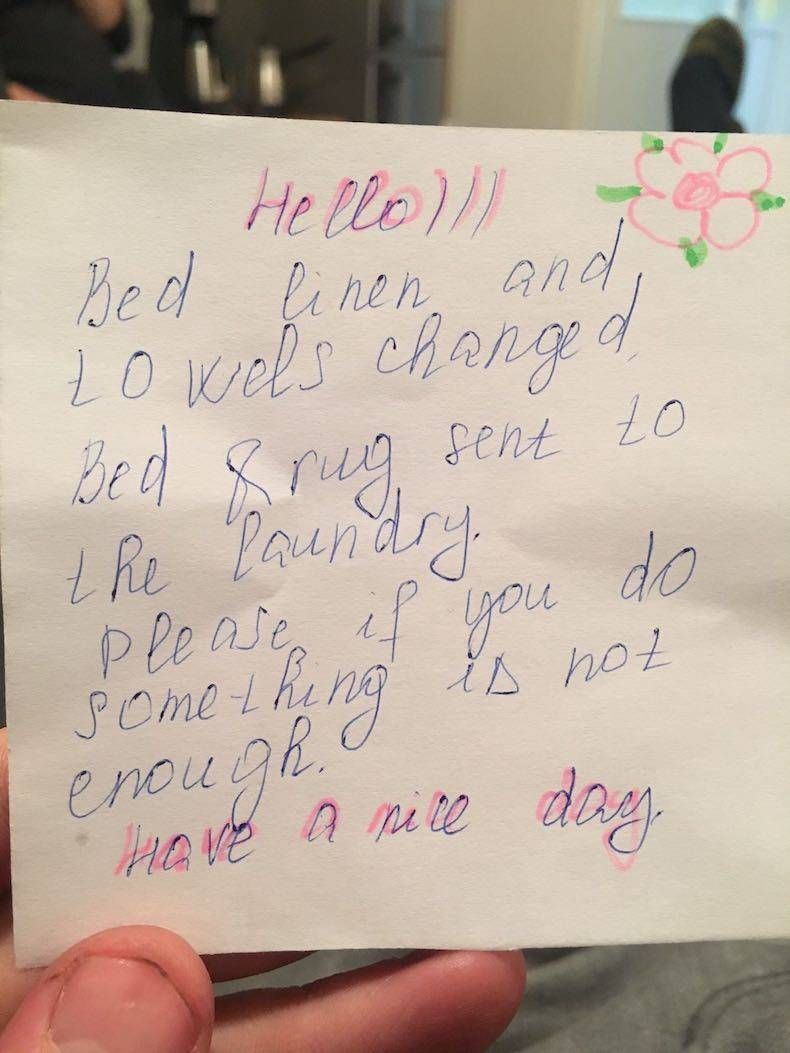 Hello)))
Bed linen and
towels changed,
Bed & rug sent to
the laundry.
please if you do
something is not
enough.
Have a nice day.